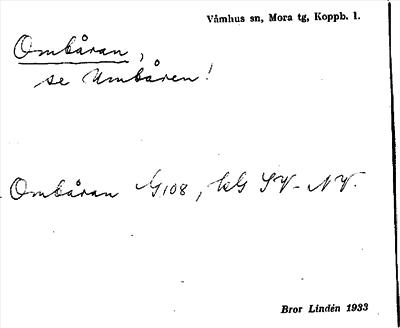 Våmhus sn, Mora tg, Koppb. l.
Ombåran,
se Umbåren!
Ombåran G108, SV - NV.
Bror Lindén 1933